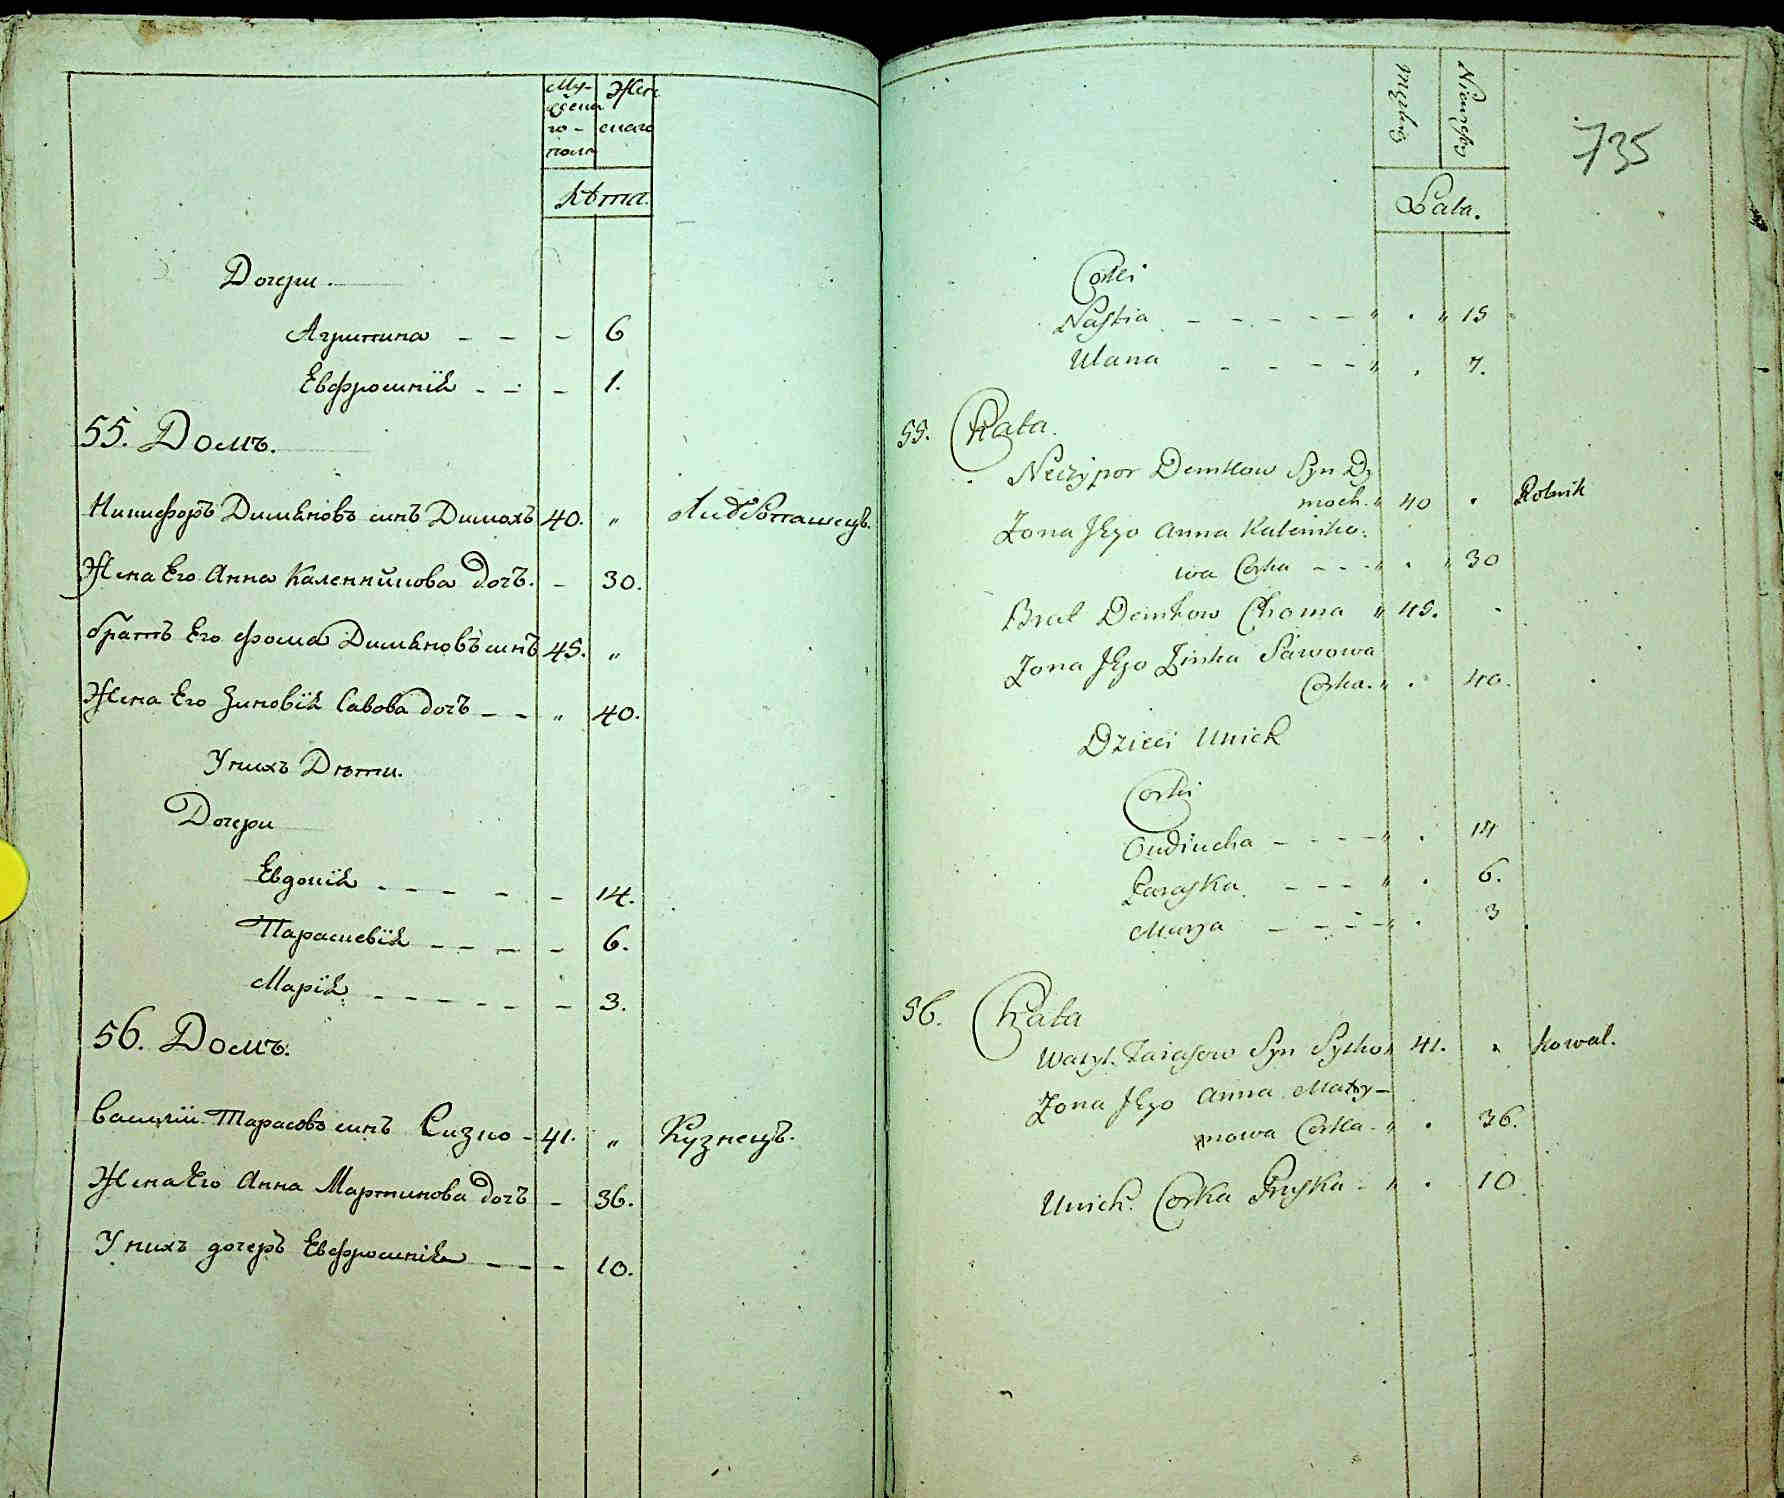 Му- Жен
жеска
го - скаго
пола
Лѣта.
Дочери.
Агрипина - - - 6
Евфросинія - - - 1.
55. Домъ.
Никифоръ Димяновъ синъ Димохъ 40. "
Жена Его Анна Каленникова дочъ. - 30.
братъ Его Фома Димяновъ синъ 45. "
Жена Его Зиновія Савова дочъ - - " 40.
У нихъ Дѣти.
Дочери
Евдокія - - - - - 14.
Параскевія - - - - - 6.
Марія - - - - - - 3.
56. Домъ.
Василій Тарасовъ синъ Сизко - 41. " Кузнецъ.
Жена Его Анна Мартинова дочъ - 36.
У нихъ дочеръ Евфросинія - - - 10.
735
Męzkiey Niewieściey
Lata.
Corki
Nastia - - - - - " . " 15
Ulana - - - - " . 7.
55. Chata.
Neczypor Demkow Syn Dy
moch. " 40 . Rolnik
Zona Jego Anna Kaleniko:
wa Corka - - - " . " 30
Brat Demkow Choma " 45. .
Zona Jego Zinka Sawowa
Corka. " . 40.
Dzieci Unich
Corki
Oudiucha - - - - " . 14
Paraska - - - " . 6.
Marya - - - - " . 3
56. Chata
Wasyl Tarasow Syn Syzko " 41. " Kowal.
Zona Jego Anna Marty-
nowa Corka - " . 36.
Unich Corka Pryska - " . 10.